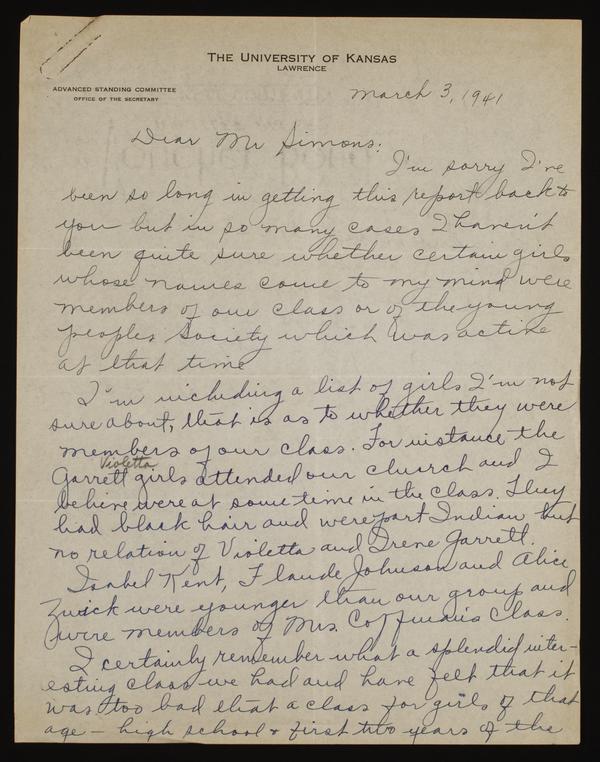 THE UNIVERSITY OF KANSAS
LAWRENCE
ADVANCED STANDING COMMITTEE
OFFICE OF THE SECRETARY
March 3, 1941
Dear Mr Simons:
I'm sorry I've
been so long in getting this report back to
you but in so many cases I haven't
been quite sure whether certain girls
whose names come to my mind were
members of our class or of the young
peoples society which was active
at that time
I'm including a list of girls I'm not
sure about, that is as to whether they were
members of our class. For instance the
Violetta
Garrett girls attended our church and I
believe were at some time in the class. They
had black hair and were part Indian but
no relation of Violetta and Irene Garrett.
Isabel Kent, Flaude Johnson and Alice
Zwick were younger than our group and
were members of Mrs. Coffman's Class.
I certainly remember what a splendid inter-
esting class we had and have felt that it
was too bad that a class for girls of that
age - high school & first two years of the